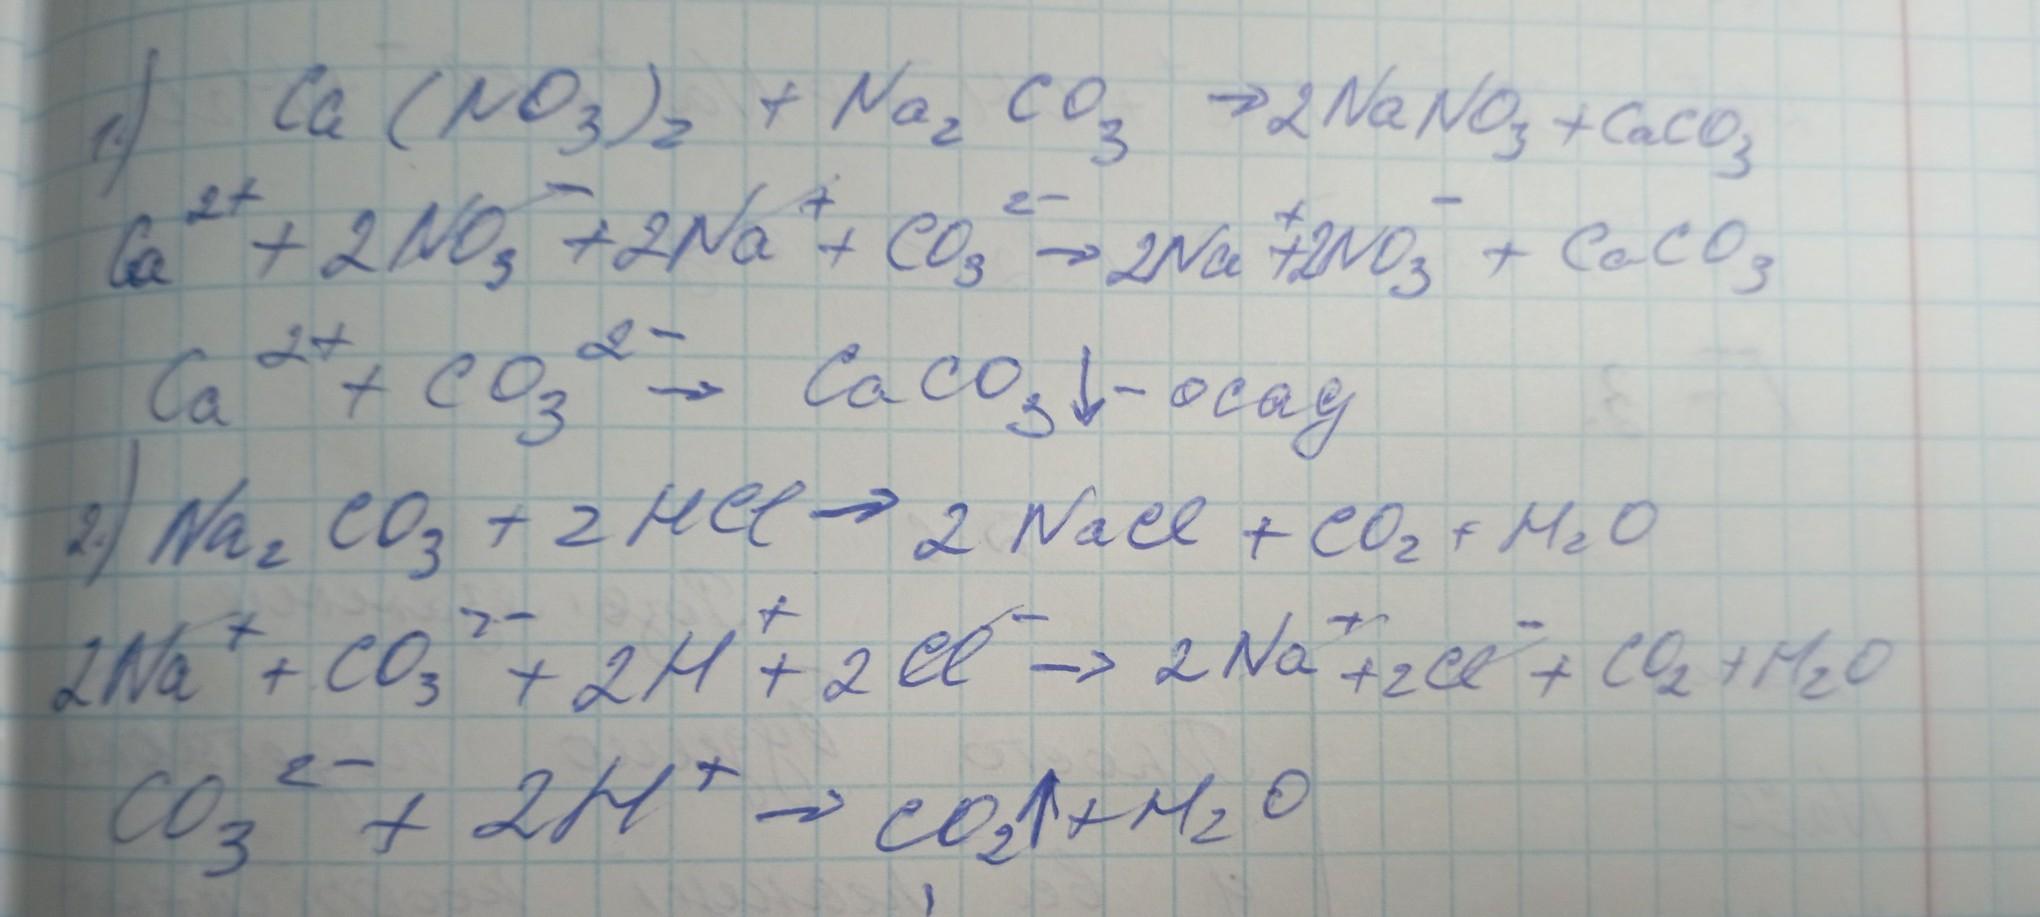 1.) Ca(NO₃)₂ + Na₂CO₃ → 2NaNO₃ + CaCO₃
Ca²⁺ + 2NO₃⁻ + 2Na⁺ + CO₃²⁻ → 2Na⁺ + 2NO₃⁻ + CaCO₃
Ca²⁺ + CO₃²⁻ → CaCO₃↓ - осад
2.) Na₂CO₃ + 2HCl → 2NaCl + CO₂ + H₂O
2Na⁺ + CO₃²⁻ + 2H⁺ + 2Cl⁻ → 2Na⁺ + 2Cl⁻ + CO₂ + H₂O
CO₃²⁻ + 2H⁺ → CO₂↑ + H₂O